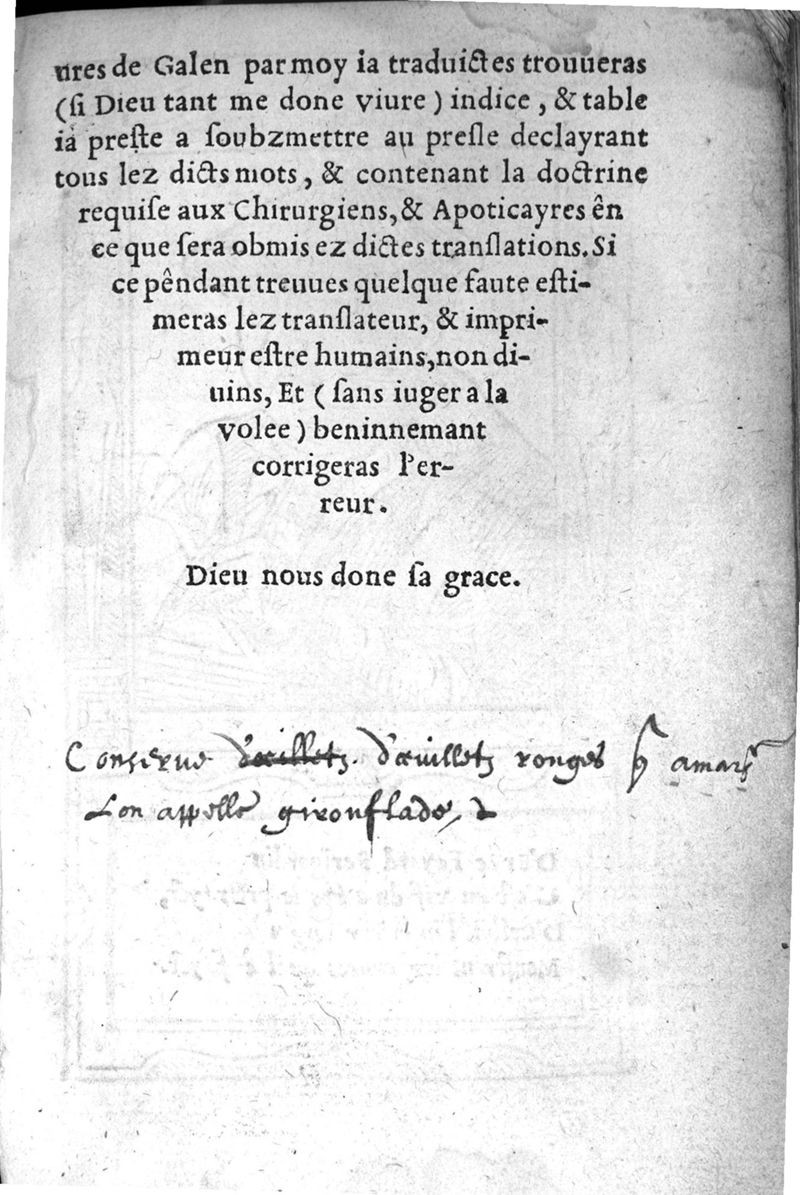 ures de Galen par moy ia traduictes trouueras
(ſi Dieu tant me done viure) indice, & table
ia preſte a ſoubzmettre au preſſe declayrant
tous lez dicts mots, & contenant la doctrine
requiſe aux Chirurgiens, & Apoticayres ên
ce que ſera obmis ez dictes tranſlations. Si
ce pêndant treuues quelque faute eſti-
meras lez tranſlateur, & impri-
meur eſtre humains, non di-
uins, Et (ſans iuger a la
volee) beninnemant
corrigeras l'er-
reur.
Dieu nous done ſa grace.
Conserue d'œilletz d'œuilletz rouges
Lon appelle girouflade